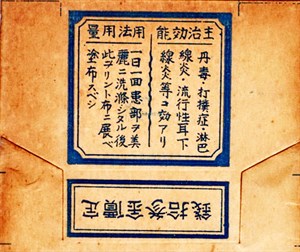 主治効能
丹毒・打撲症・淋巴
線炎・流行性耳下
線炎等ニ効アリ
用法用量
一日一回患部ヲ美
麗ニ洗滌シタル後
此ヲリント布ニ展ベ
塗布スベシ
定價金参拾錢